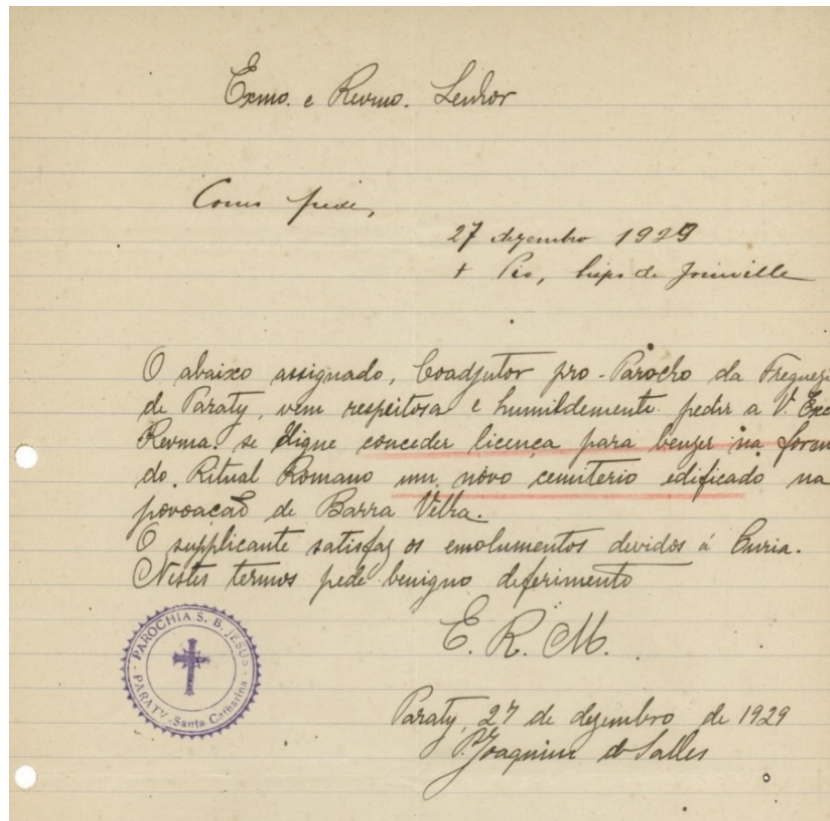 Exmo. e Revmo. Senhor
Como pede,
27 dezembro 1929
+ Pio, bispo de Joinville
O abaixo assignado, Coadjutor pro-Parocho da Freguezi
de Paraty, vem respeitosa e humildemente pedir a V. Exc
Revma. se digne conceder licença para benzer na form
do Ritual Romano um novo cemiterio edificado na
povoação de Barra Velha.
O supplicante satisfaz os emolumentos devidos á Curia.
Nestes termos pede benigno deferimento
E. R. M.
PAROCHIA S. B. JESUS
PARATY - Santa Catharina
Paraty, 27 de dezembro de 1929
P. Joaquim de Salles